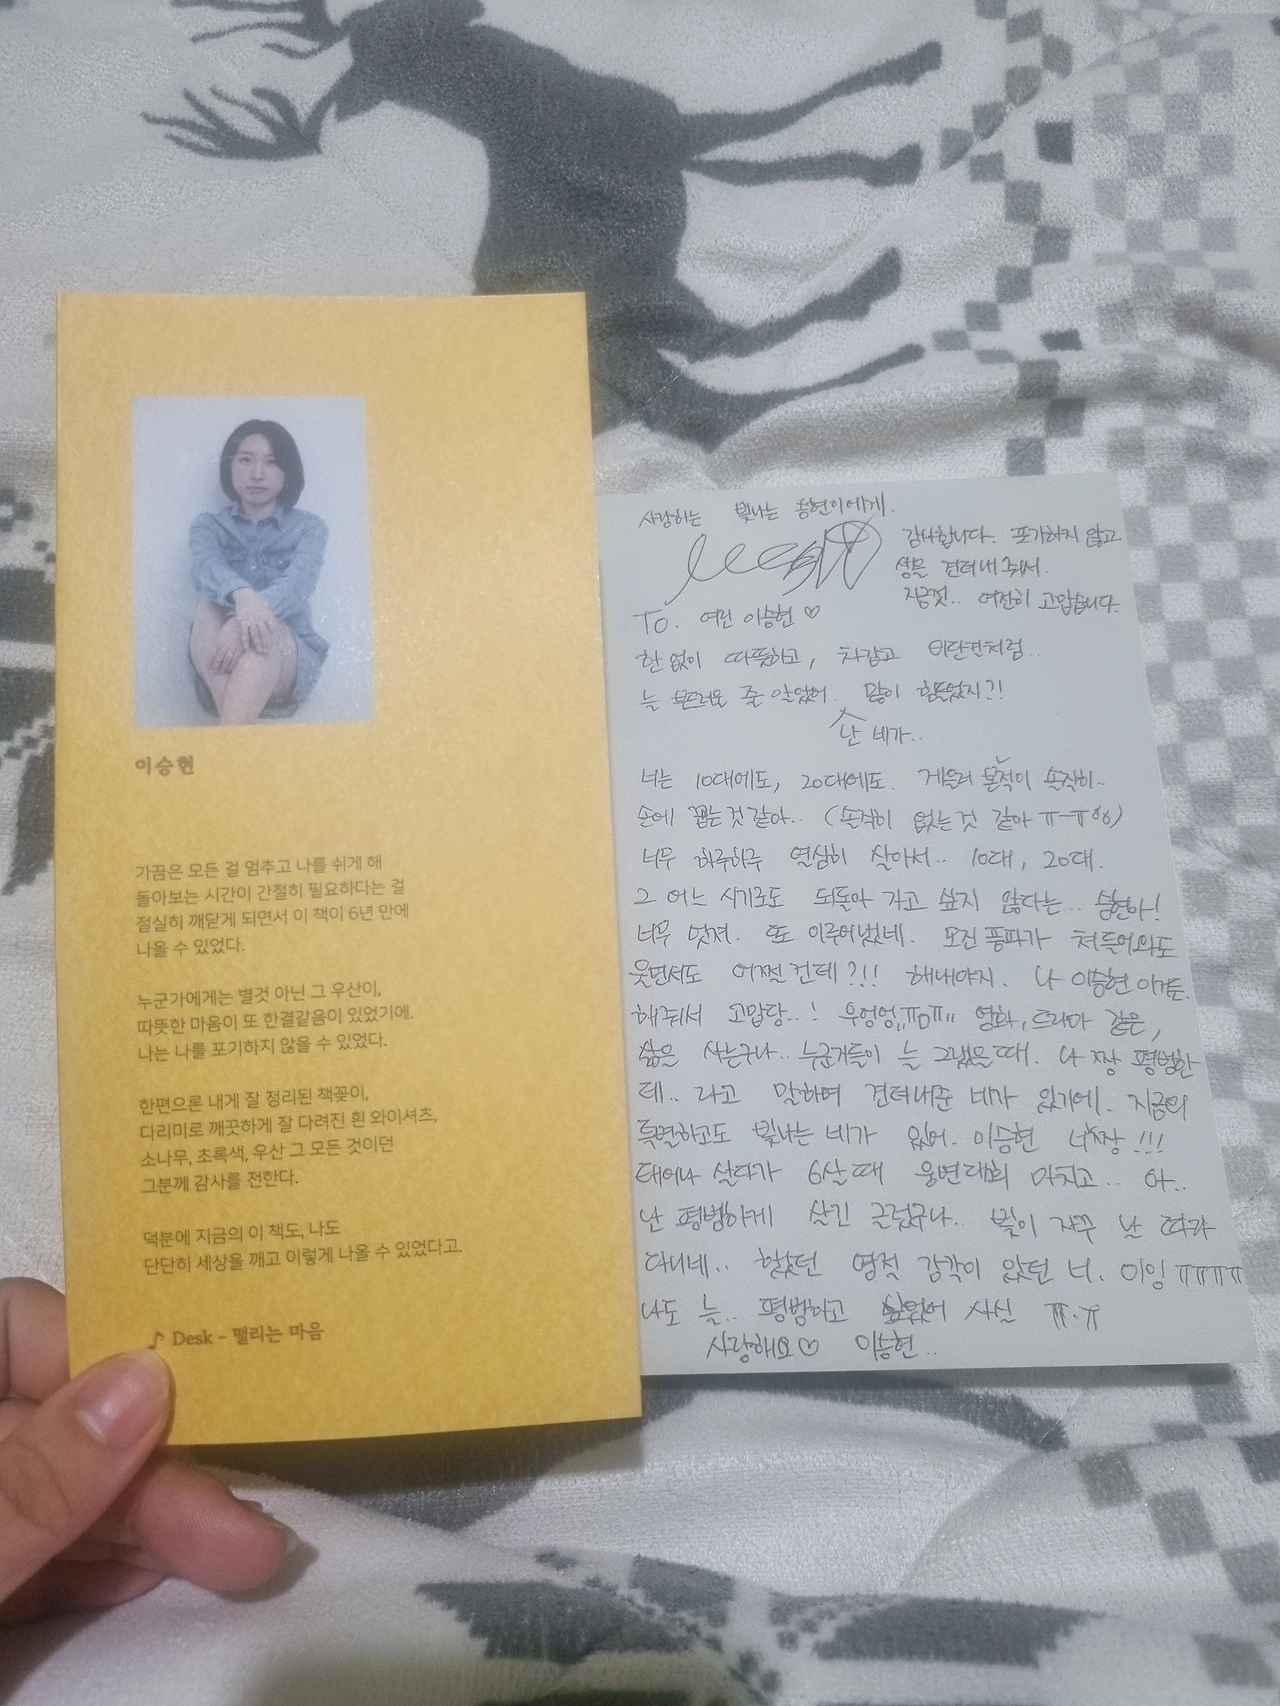 이승현
가끔은 모든 걸 멈추고 나를 쉬게 해
돌아보는 시간이 간절히 필요하다는 걸
절실히 깨닫게 되면서 이 책이 6년 만에
나올 수 있었다.
누군가에게는 별것 아닌 그 우산이,
따뜻한 마음이 또 한결같음이 있었기에.
나는 나를 포기하지 않을 수 있었다.
한편으론 내게 잘 정리된 책꽂이,
다리미로 깨끗하게 잘 다려진 흰 와이셔츠,
소나무, 초록색, 우산 그 모든 것이던
그분께 감사를 전한다.
덕분에 지금의 이 책도, 나도
단단히 세상을 깨고 이렇게 나올 수 있었다고.
♪ Desk - 떨리는 마음
사랑하는 빛나는 승현이에게.
감사합니다. 포기하지 않고
삶을 견뎌내 줘서.
지금껏.. 여전히 고맙습니다.
To. 여린 이승현 ♡
한없이 따뜻하고, 차갑고 비단결처럼..
늘 부드러운 줄 알았어. 많이 힘들었지?!
난 네가..
너는 10대에도, 20대에도. 게을러 본 적이 솔직히..
손에 꼽는 것 같아.. (솔직히 없는 것 같아 ㅠ-ㅠ)
너무 하루하루 열심히 살아서.. 10대, 20대.
그 어느 시기로도 되돌아 가고 싶지 않다는.. 승현아!
너무 멋져. 또 이루어냈네. 모진 풍파가 쳐들어와도
웃면서도 어쩔건데?!! 해내야지. 나 이승현이거든.
해줘서 고맙당..! 우엉엉,,ㅠoㅠ,, 영화, 드라마 같은,
삶을 사는구나.. 누군가들이 늘 그랬을때. 나 짱 평범한
데.. 라고 말하며 견뎌내준 네가 있기에. 지금의
특별하고도 빛나는 네가 있어. 이승현 너 짱!!!
태어나 살다가 6살 때 웅변대회 마치고.. 아..
난 평범하게 살긴 글렀구나.. 빛이 자꾸 날 따라
다니네.. 했던 영적 감각이 있던 너. 이잉 ㅠㅠㅠㅠ
나도 늘.. 평범하고 싶었어 사실 ㅠ.ㅠ
사랑해요♡ 이승현..